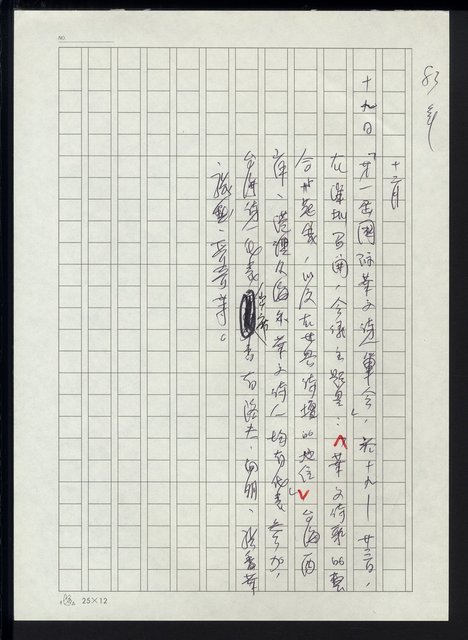 83年
十二月
十九日「第一屆國際華文詩人筆會」,於十九—廿三日,
在深圳召開,會議主題是:「華文詩歌的藝
術發展,以及在世界詩壇的地位」台海兩
岸、港澳及海外華文詩人均有代表參加,
台灣詩人代表出席者有洛夫、向明、張香華
、張默、管管等。
NO.
25×12